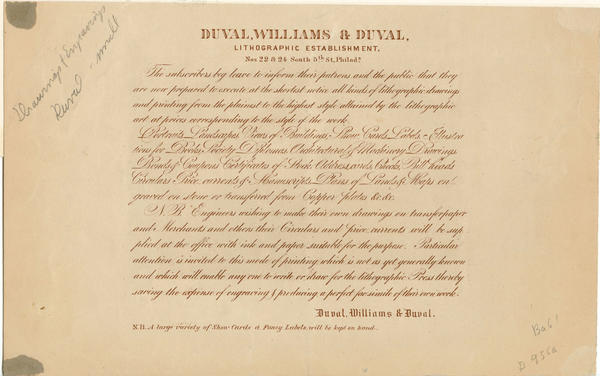 DUVAL, WILLIAMS & DUVAL,
LITHOGRAPHIC ESTABLISHMENT,
Nos 22 & 24 South 5th St, Philada
The subscribers beg leave to inform their patrons and the public that they
are now prepared to execute at the shortest notice all kinds of lithographic drawings
and printing from the plainest to the highest style attained by the lithographic
art at prices corresponding to the style of the work.
Portraits, Landscapes, Views of Buildings, Show Cards, Labels, Illustra
tions for Books, Society Diplomas, Architectural & Machinery Drawings
Bonds & Coupons, Certificates of Stock, Address cards, Checks, Bill heads
Circulars, Price currents & Manuscripts, Plans of Lands & Maps en
graved on stone or transferred from Copper plates &c &c.
N.B. Engineers wishing to make their own drawings on transfer paper
and Merchants and others their Circulars and price currents will be sup
plied at the office with ink and paper suitable for the purpose. Particular
attention is invited to this mode of printing which is not as yet generally known
and which will enable any one to write or draw for the lithographic Press thereby
saving the expense of engraving & producing a perfect facsimile of their own work.
Duval, Williams & Duval.
N.B. A large variety of Show Cards & Fancy Labels, will be kept on hand.
Drawings & Engravings
Duval - small
Ba61
D 956a